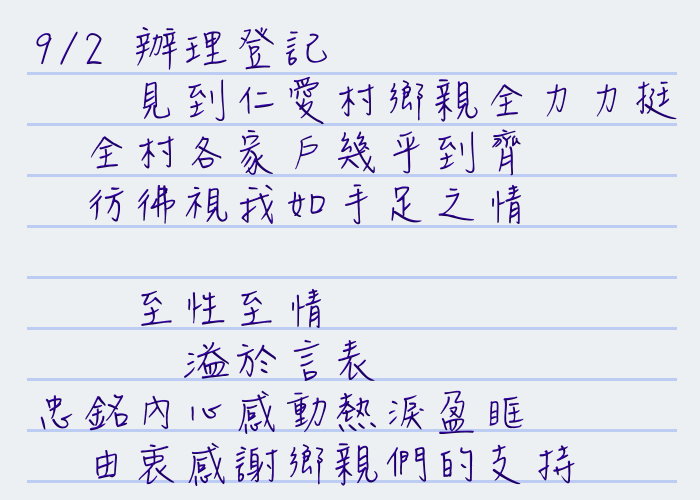 9/2 辦理登記
見到仁愛村鄉親全力力挺
全村各家戶幾乎到齊
彷彿視我如手足之情
至性至情
溢於言表
忠銘內心感動熱淚盈眶
由衷感謝鄉親們的支持